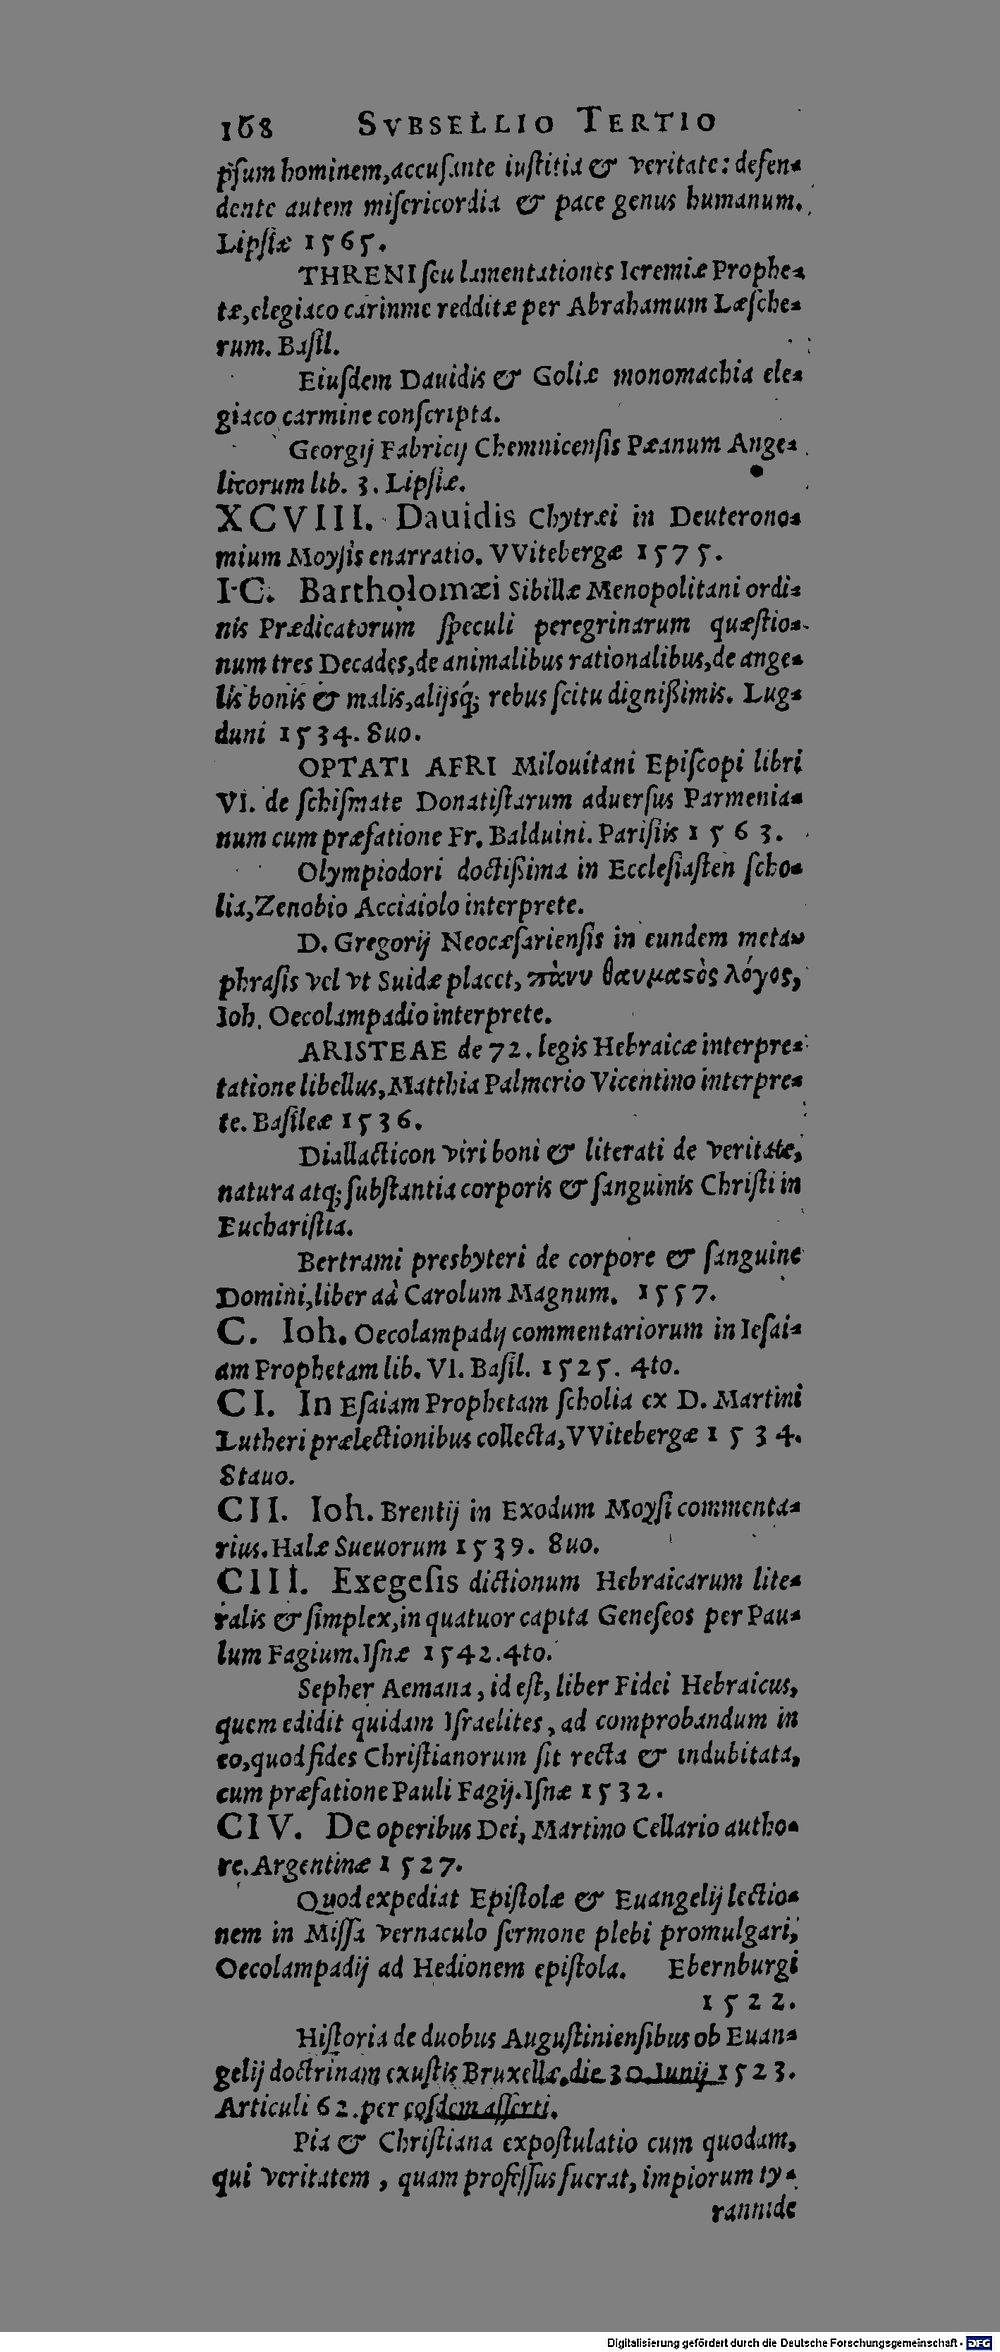 168 SVBSELLIO TERTIO
pſum hominem, accuſante iuſtitia & veritate: defen⸗
dente autem miſericordia & pace genus humanum.
Lipſiæ 1565.
THRENI ſeu lamentationes Ieremiæ Prophe⸗
tæ, elegiaco carinme redditæ per Abrahamum Læſche⸗
rum. Baſil.
Eiuſdem Dauidis & Goliæ monomachia ele⸗
giaco carmine conſcripta.
Georgij Fabricij Chemnicenſis Pæanum Ange⸗
licorum lib. 3. Lipſiæ.
XCVIII. Dauidis Chytræi in Deuterono⸗
mium Moyſis enarratio. VVitebergæ 1575.
IC. Bartholomæi Sibillæ Menopolitani ordi⸗
nis Prædicatorum ſpeculi peregrinarum quæſtio⸗
num tres Decades, de animalibus rationalibus, de ange⸗
lis bonis & malis, alijsq́; rebus ſcitu dignißimis. Lug⸗
duni 1534. 8uo.
OPTATI AFRI Milouitani Epiſcopi libri
VI. de ſchiſmate Donatiſtarum aduerſus Parmenia⸗
num cum præfatione Fr. Balduini. Pariſiis 1563.
Olympiodori doctißima in Eccleſiaſten ſcho⸗
lia, Zenobio Acciaiolo interprete.
D. Gregorij Neocæſarienſis in eundem meta⸗
phraſis vel vt Suidæ placet, πάνυ θαυμαϛὸς λόγος,
Ioh. Oecolampadio interprete.
ARISTEAE de 72. legis Hebraicæ interpre⸗
tatione libellus, Matthia Palmerio Vicentino interpre⸗
te. Baſileæ 1536.
Diallacticon viri boni & literati de veritate,
natura atq; ſubſtantia corporis & ſanguinis Chriſti in
Euchariſtia.
Bertrami presbyteri de corpore & ſanguine
Domini, liber ad Carolum Magnum. 1557.
C. Ioh. Oecolampadij commentariorum in Ieſai⸗
am Prophetam lib. VI. Baſil. 1525. 4to.
CI. In Eſaiam Prophetam ſcholia ex D. Martini
Lutheri prælectionibus collecta, VVitebergæ 1534.
8tauo.
CII. Ioh. Brentij in Exodum Moyſi commenta⸗
rius. Halæ Sueuorum 1539. 8uo.
CIII. Exegeſis dictionum Hebraicarum lite⸗
ralis & ſimplex, in quatuor capita Geneſeos per Pau⸗
lum Fagium. Iſnæ 1542. 4to.
Sepher Aemana, id eſt, liber Fidei Hebraicus,
quem edidit quidam Iſraelites, ad comprobandum in
eo, quod fides Chriſtianorum ſit recta & indubitata,
cum præfatione Pauli Fagij. Iſnæ 1532.
CIV. De operibus Dei, Martino Cellario autho⸗
re. Argentinæ 1527.
Quod expediat Epiſtolæ & Euangelij lectio⸗
nem in Miſſa vernaculo ſermone plebi promulgari,
Oecolampadij ad Hedionem epiſtola. Ebernburgi
1522.
Hiſtoria de duobus Auguſtinienſibus ob Euan⸗
gelij doctrinam exuſtis Bruxellæ, die 30. Iunij 1523.
Articuli 62. per eoſdem aſſerti.
Pia & Chriſtiana expoſtulatio cum quodam,
qui veritatem, quam profeſſus fuerat, impiorum ty⸗
rannide
Digitalisierung gefördert durch die Deutsche Forschungsgemeinschaft - DFG